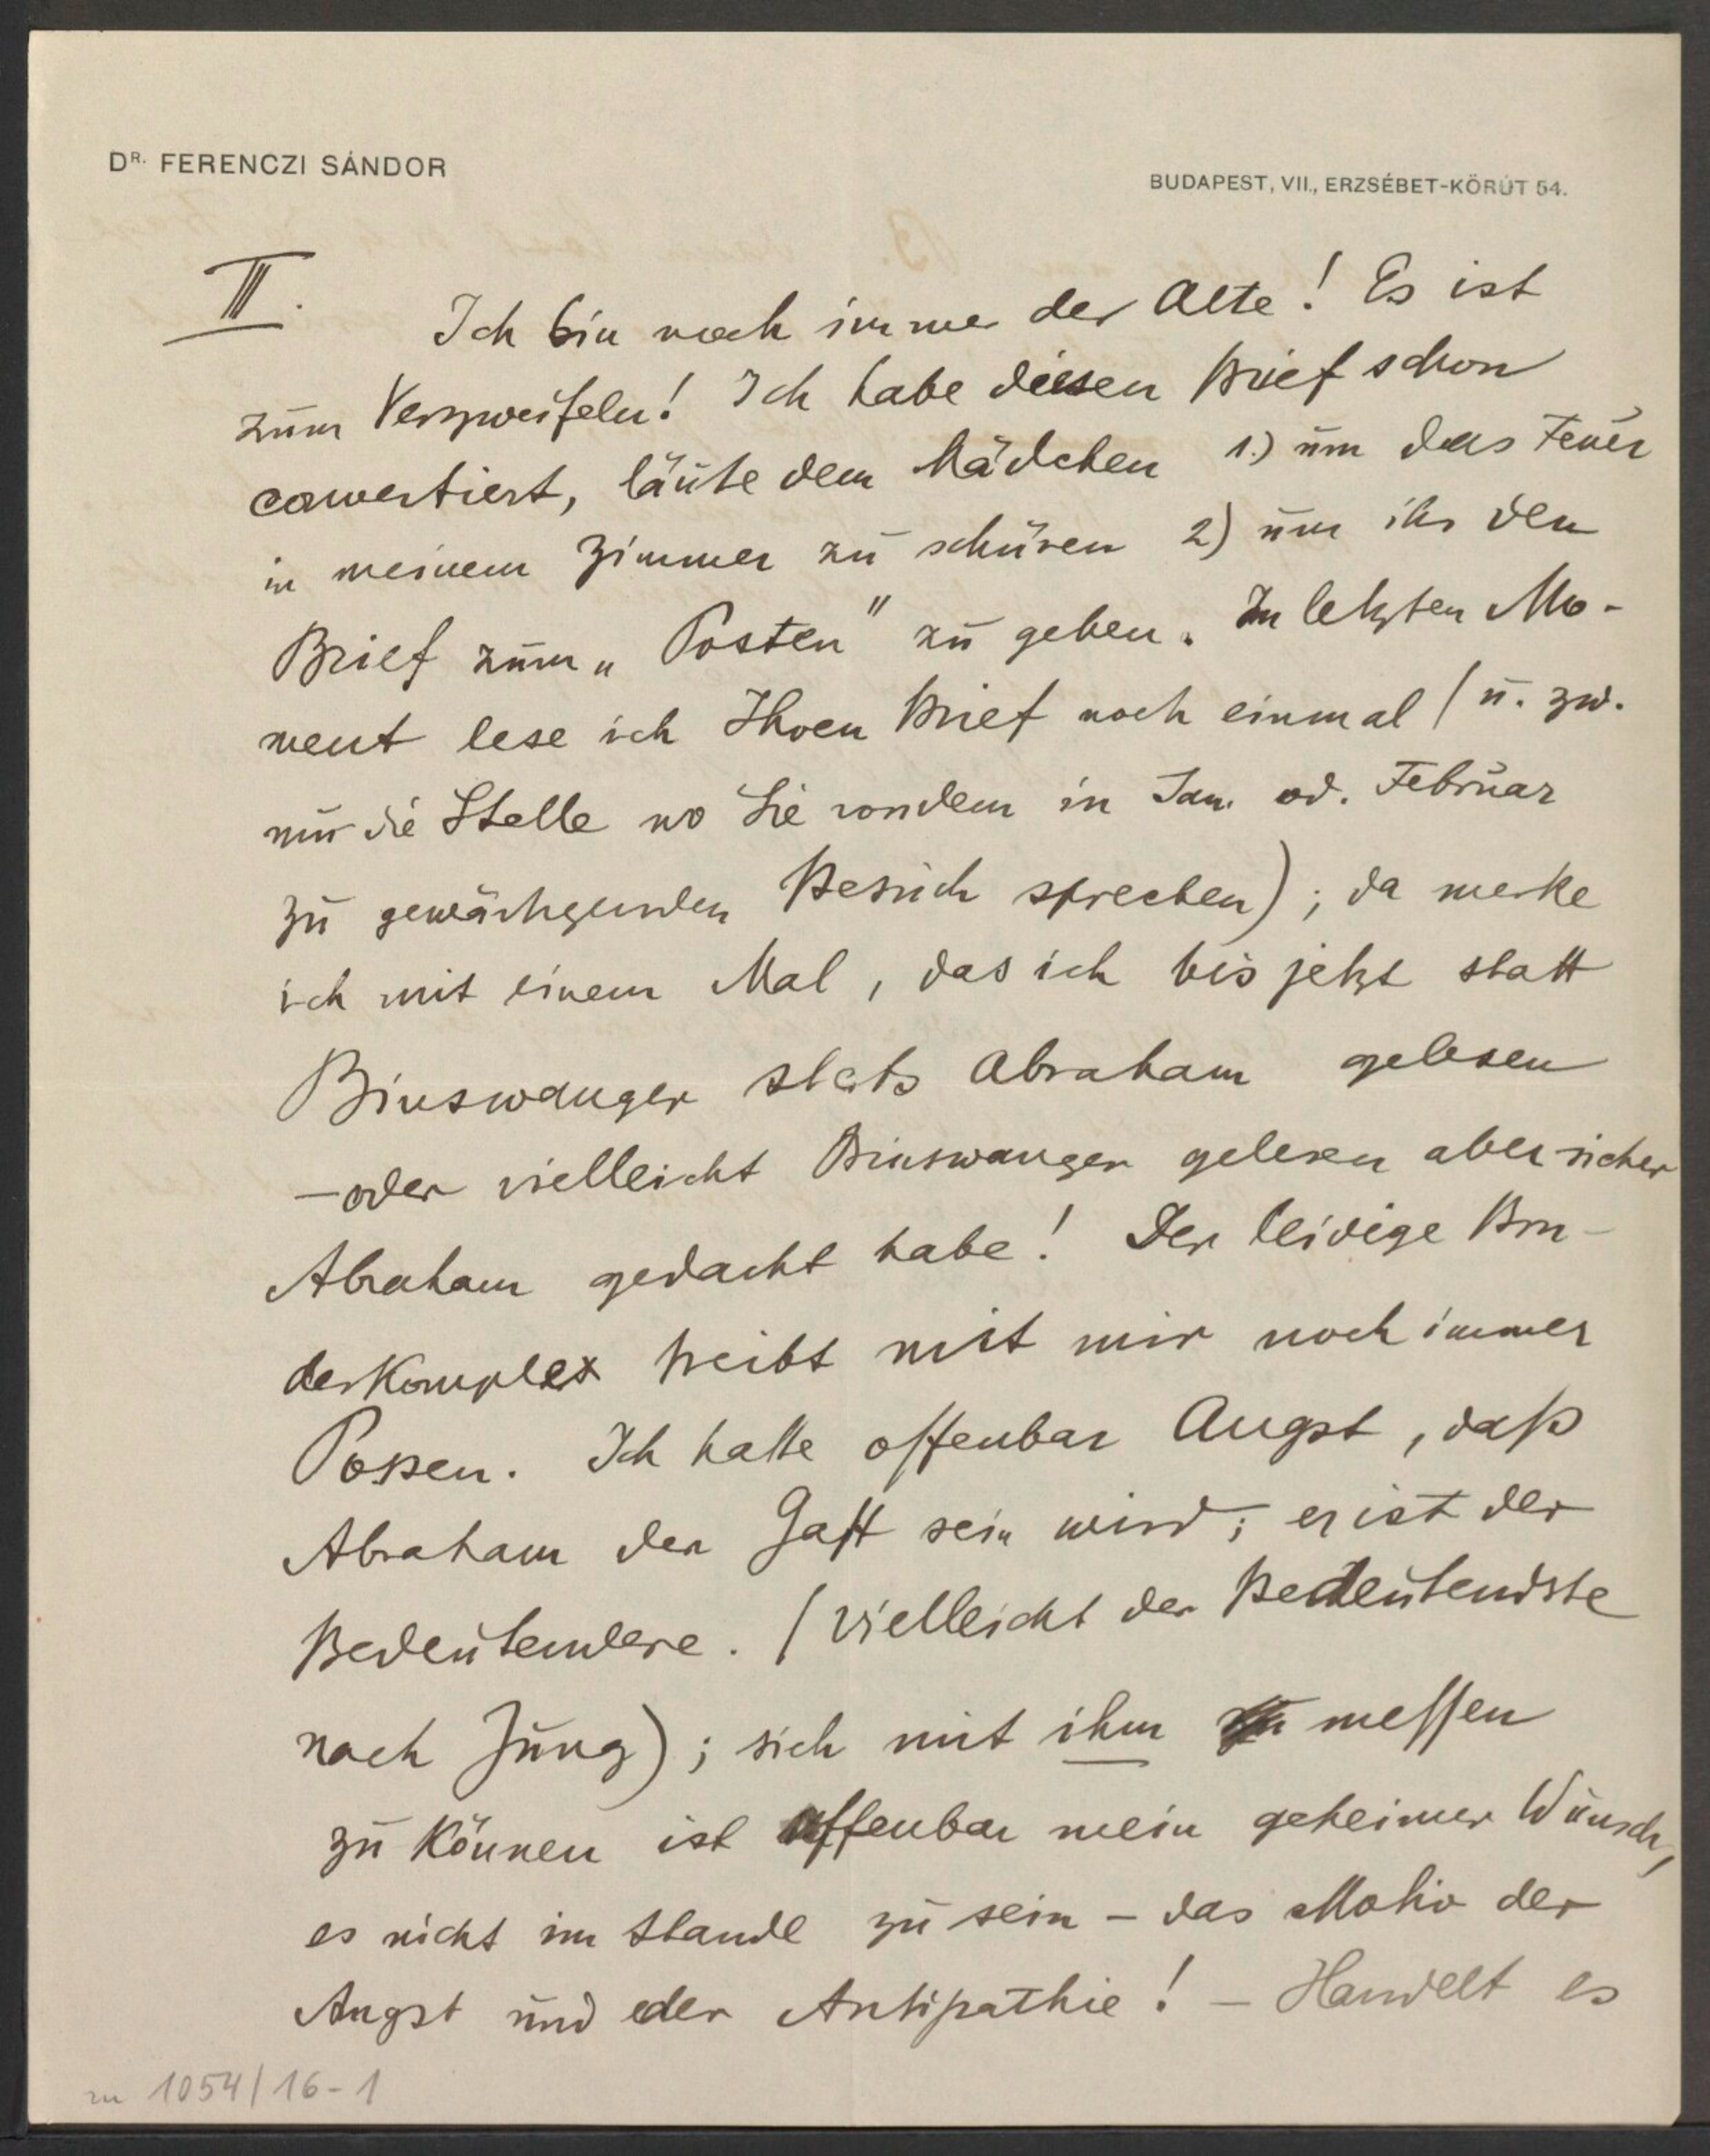 DR. FERENCZI SÁNDOR
BUDAPEST, VII., ERZSÉBET-KÖRÚT 54.
III. Ich bin noch immer der Alte! Es ist
zum Verzweifeln! Ich habe diesen Brief schon
couvertiert, läute dem Mädchen 1.) um das Feuer
in meinem Zimmer zu schüren 2) um ihr den
Brief zum „Posten" zu geben. Im letzten Mo-
ment lese ich Ihren Brief noch einmal (u. zw.
nur die Stelle wo Sie von dem in Jan. od. Februar
zu gewärtigenden Besuch sprechen); da merke
ich mit einem Mal, das ich bis jetzt statt
Binswanger stets Abraham gelesen
– oder vielleicht Binswanger gelesen aber sicher
Abraham gedacht habe! Der leidige Bru-
derkomplex treibt mit mir noch immer
Possen. Ich hatte offenbar Angst, daß
Abraham der Gast sein wird; er ist der
Bedeutendere. (vielleicht der Bedeutendste
nach Jung); sich mit ihm messen
zu können ist offenbar mein geheimer Wunsch,
es nicht im Stande zu sein – das Motiv der
Angst und der Antipathie! – Handelt es
zu 1054/16-1